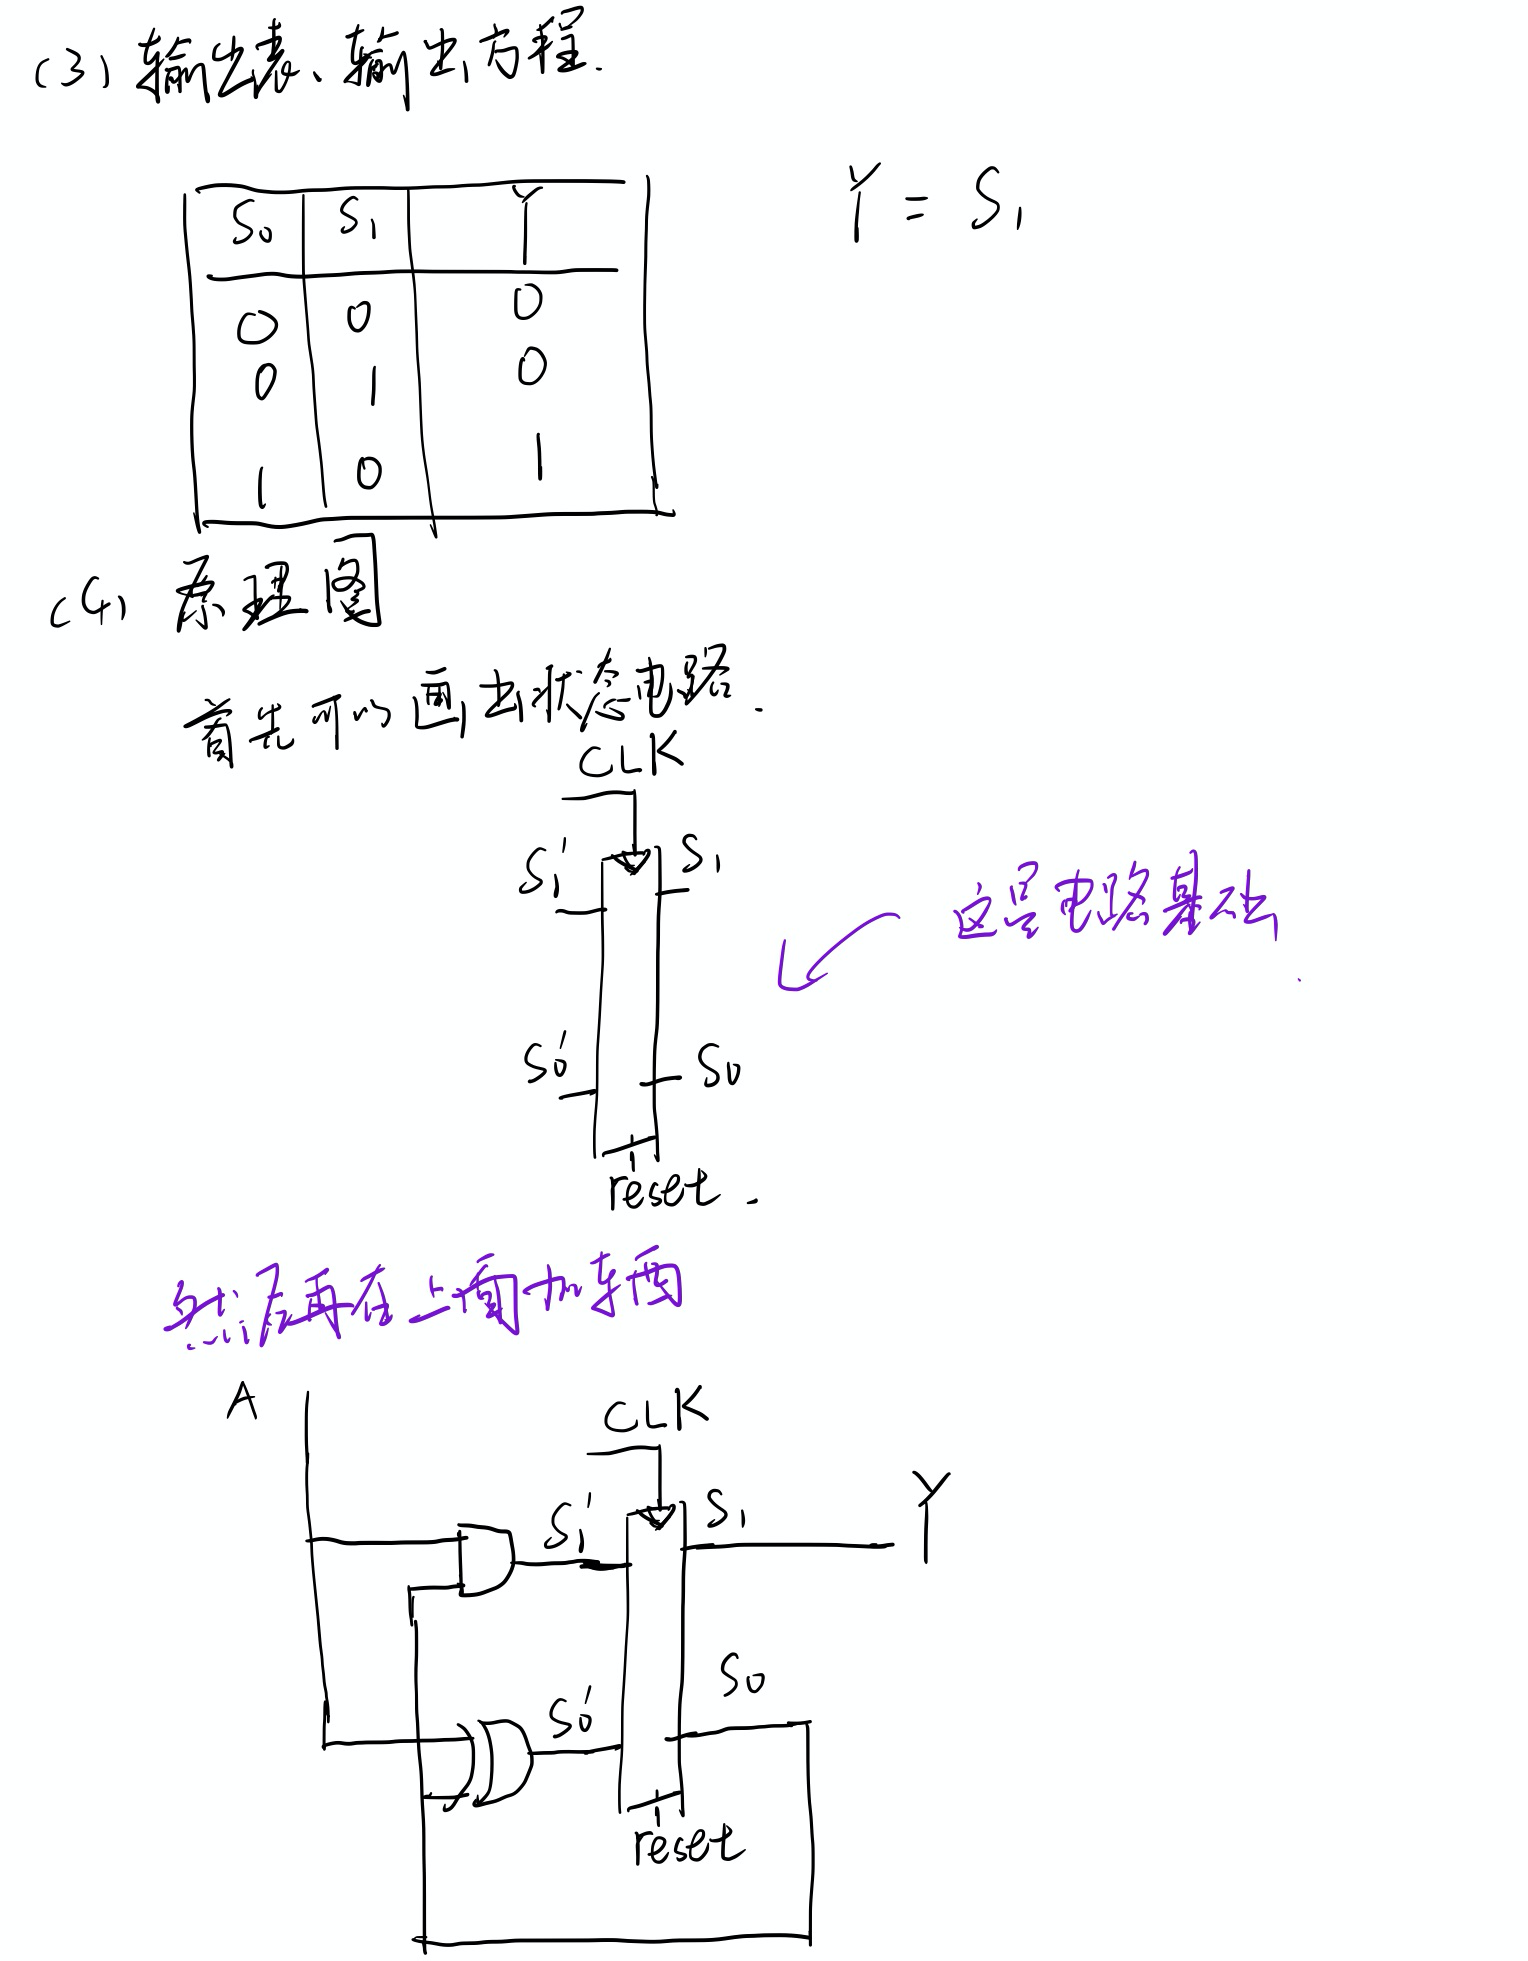 (3) 输出表、输出方程.
S₀ S₁ Y
0 0 0
0 1 0
1 0 1
Y = S₁
(4) 原理图
首先可以画出状态电路.
CLK
S₁' S₁
这是电路基础.
S₀' S₀
reset.
然后再在上面加东西
A CLK
S₁' S₁ Y
S₀' S₀
reset